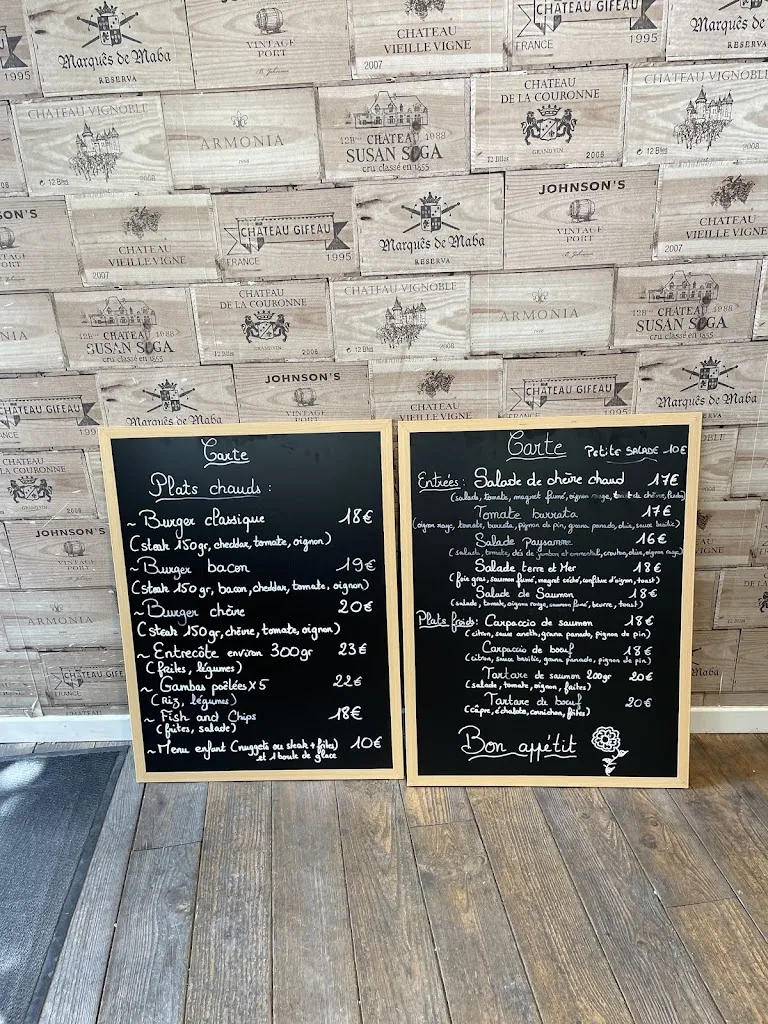 1995
Marquès de Maba
RESERVA
VINTAGE
PORT
CHATEAU
VIEILLE VIGNE
2007
CHÂTEAU GIFEAU
FRANCE
1995
Marquès de Maba
RESERVA
CHATEAU VIGNOBLE
12 Btles
2008
ARMONIA
12Btl
1988
CHATEAU
SUSAN SEGA
cru classé en 1855
CHATEAU
DE LA COURONNE
12 Btles
GRAND VIN
2008
CHATEAU VIGNOBLE
12 Btles
JOHNSON'S
CHATEAU
VIEILLE VIGNE
2007
CHÂTEAU GIFEAU
FRANCE
1995
Marquès de Maba
RESERVA
JOHNSON'S
VINTAGE
PORT
CHATEAU
VIEILLE VIGNE
2007
CHATEAU
SUSAN SEGA
cru classé en 1855
CHATEAU
DE LA COURONNE
12 Btles
GRAND VIN
2008
CHATEAU VIGNOBLE
12 Btles
2008
ARMONIA
1988
CHATEAU
SUSAN SEGA
cru classé en 1855
CHÂTEAU GIFEAU
1995
Marquès de Maba
JOHNSON'S
VINTAGE
CHATEAU
VIEILLE VIGNE
CHÂTEAU GIFEAU
FRANCE
1995
Marquès de Maba
RESERVA
CHATEAU
DE LA COURONNE
JOHNSON'S
VINTAGE
PORT
ARMONIA
CHÂTEAU GIFEAU
FRANCE
Carte
Plats chauds :
~ Burger classique 18€
(steak 150gr, cheddar, tomate, oignon)
~ Burger bacon 19€
(steak 150gr, bacon, cheddar, tomate, oignon)
~ Burger chèvre 20€
(steak 150gr, chèvre, tomate, oignon)
~ Entrecôte environ 300gr 23€
(frites, légumes)
~ Gambas poêlées x 5 22€
(Riz, légumes)
~ Fish and Chips 18€
(frites, salade)
~ Menu enfant (nuggets ou steak + frites) 10€
et 1 boule de glace
Carte
Petite SALADE - 10€
Entrées : Salade de chèvre chaud 17€
(salade, tomate, magret fumé, oignon rouge, toast de chèvre,
Tomate burrata 17€
(oignon rouge, tomate, burrata, pignon de pin, grana panado, sauce basilic)
Salade Paysanne 16€
(salade, tomate, dés de jambon et emmental, crouton, oignon rouge)
Salade terre et Mer 18€
(foie gras, saumon fumé, magret séché, confiture d'oignon, toast)
Salade de Saumon 18€
(salade, tomate, oignon rouge, saumon fumé, beurre, toast)
Plats froids : Carpaccio de saumon 18€
(citron, sauce aneth, grana panado, pignon de pin)
Carpaccio de boeuf 18€
(citron, sauce basilic, grana panado, pignon de pin)
Tartare de saumon 200gr 20€
(salade, tomate, oignon, frites)
Tartare de boeuf 20€
(câpre, échalote, cornichon, frites)
Bon appétit